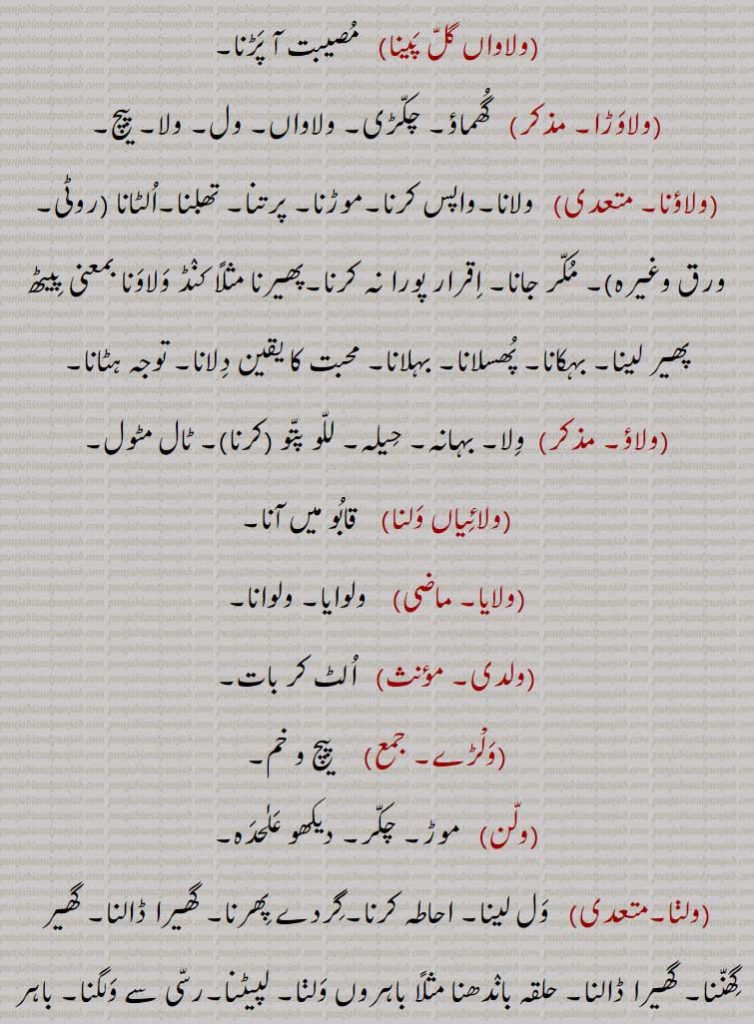 (ولاواں گلّ پَینا) مُصیبت آ پَڑنا۔
(ولاوَڑا۔ مذکر) گُھماؤ۔ چکّڑی۔ ولاواں۔ ول۔ ولا۔ پیچ۔
(ولاؤنا۔ متعدی) ولانا۔ واپس کرنا۔ موڑنا۔ پرتنا۔ تھلنا۔ اُلٹانا (روٹی۔
ورق وغیرہ)۔ مُکّر جانا۔ اِقرار پورا نہ کرنا۔ پھیرنا مثلاً کنڈ وَلاوَنا بمعنی پِیٹھ
پھیر لینا۔ بہکانا۔ پُھسلانا۔ بہلانا۔ محبت کا یقین دِلانا۔ توجہ ہٹانا۔
(ولاؤ۔ مذکر) وِلا۔ بہانہ۔ حِیلہ۔ للّو پتّو (کرنا)۔ ٹال مٹول۔
(ولائِیاں وَلنا) قابُو میں آنا۔
(ولایا۔ ماضی) ولوایا۔ ولوانا۔
(ولدی۔ مؤنث) اُلٹ کر بات۔
(وَلْڑے۔ جمع) پیچ و خم۔
(ولّن) موڑ۔ چکّر۔ دیکھو عَلٰحدَہ۔
(ولنا۔ متعدی) وَل لینا۔ احاطہ کرنا۔ گِردے پِھرنا۔ گھیرا ڈالنا۔ گھیر
گِھنّنا۔ گھیرا ڈالنا۔ حلقہ باندھنا مثلاً باہروں وَلنا۔ لپیٹنا۔ رسّی سے وَلگنا۔ باہر